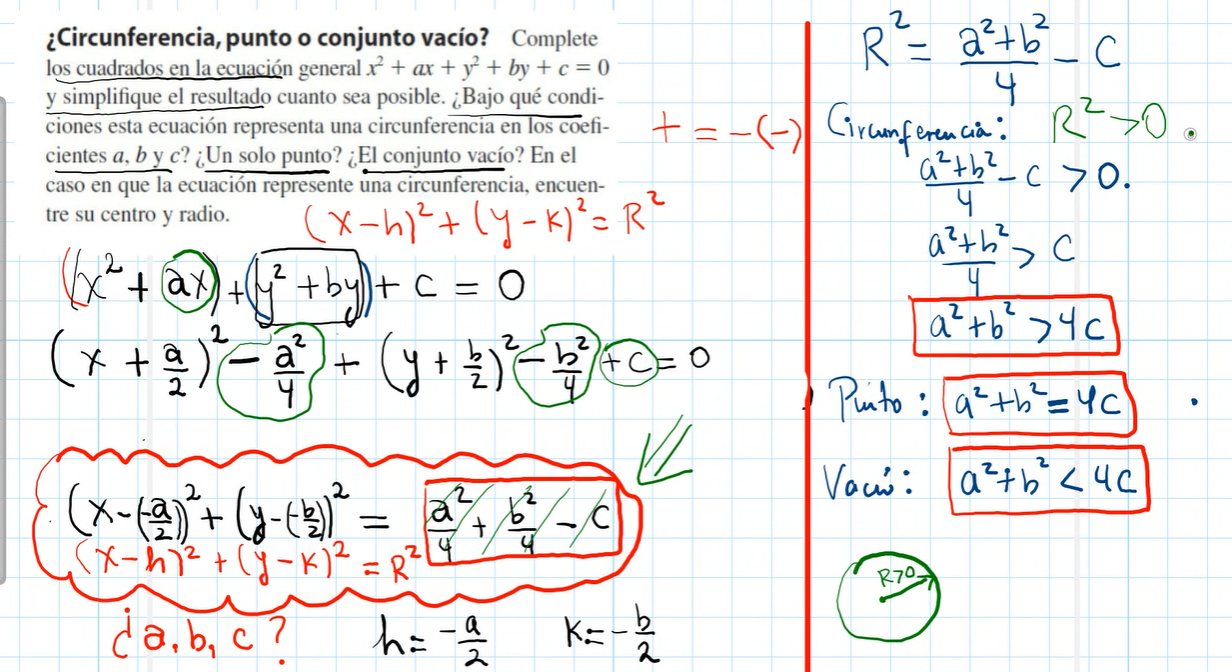 ¿Circunferencia, punto o conjunto vacío? Complete
los cuadrados en la ecuación general x² + ax + y² + by + c = 0
y simplifique el resultado cuanto sea posible. ¿Bajo qué condi-
ciones esta ecuación representa una circunferencia en los coefi-
cientes a, b y c? ¿Un solo punto? ¿El conjunto vacío? En el
caso en que la ecuación represente una circunferencia, encuen-
tre su centro y radio.
(x-h)² + (y-k)² = R²
+ = -(-)
(x² + ax) + (y² + by) + c = 0
(x + a/2)² - a²/4 + (y + b/2)² - b²/4 + c = 0
(x-(-a/2))² + (y-(-b/2))² = a²/4 + b²/4 - c
(x-h)² + (y-k)² = R²
¿a, b, c?
h = -a/2
k = -b/2
R² = a²+b²/4 - c
Circunferencia: R² > 0
a²+b²/4 - c > 0.
a²+b²/4 > c
a² + b² > 4c
Punto: a²+b² = 4c
Vació: a²+b² < 4c
R>0